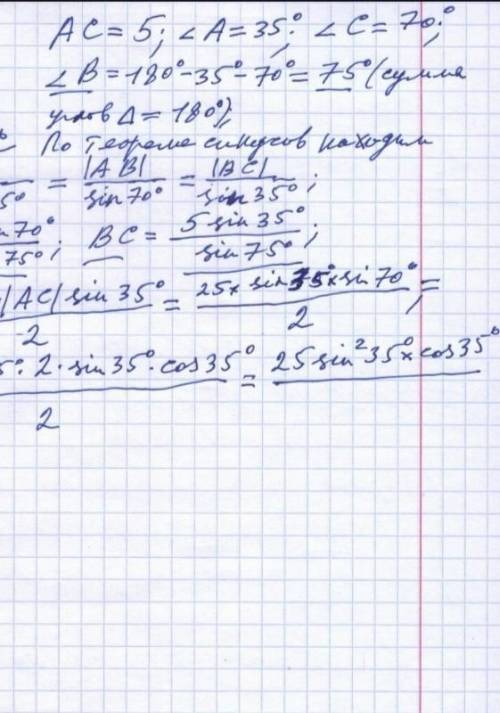 AC = 5; ∠A = 35°; ∠C = 70°;
∠B = 180° - 35° - 70° = 75° (сумма
углов Δ = 180°);
По теореме синусов находим
5° = |AB| / sin 70° = |BC| / sin 35°;
70° / 75°; BC = 5 sin 35° / sin 75°;
|AC| sin 35° / 2 = 25 × sin 35° × sin 70° / 2 =
5° · 2 · sin 35° · cos 35° / 2 = 25 sin² 35° × cos 35°